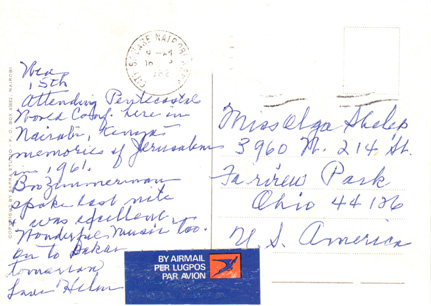 Wed
15th
Attending Pentecostal
World Conf. here in
Nairobi, Kenya
memories of Jerusalem
in 1961.
Bro Zimmerman
spoke last nite
& was excellent
Wonderful music too.
on to Dakar
tomorrow
Love Helen
Miss Olga
3960 W. 214 St.
Fairview Park
Ohio 44126
U.S. America
BY AIRMAIL
PER LUGPOS
PAR AVION